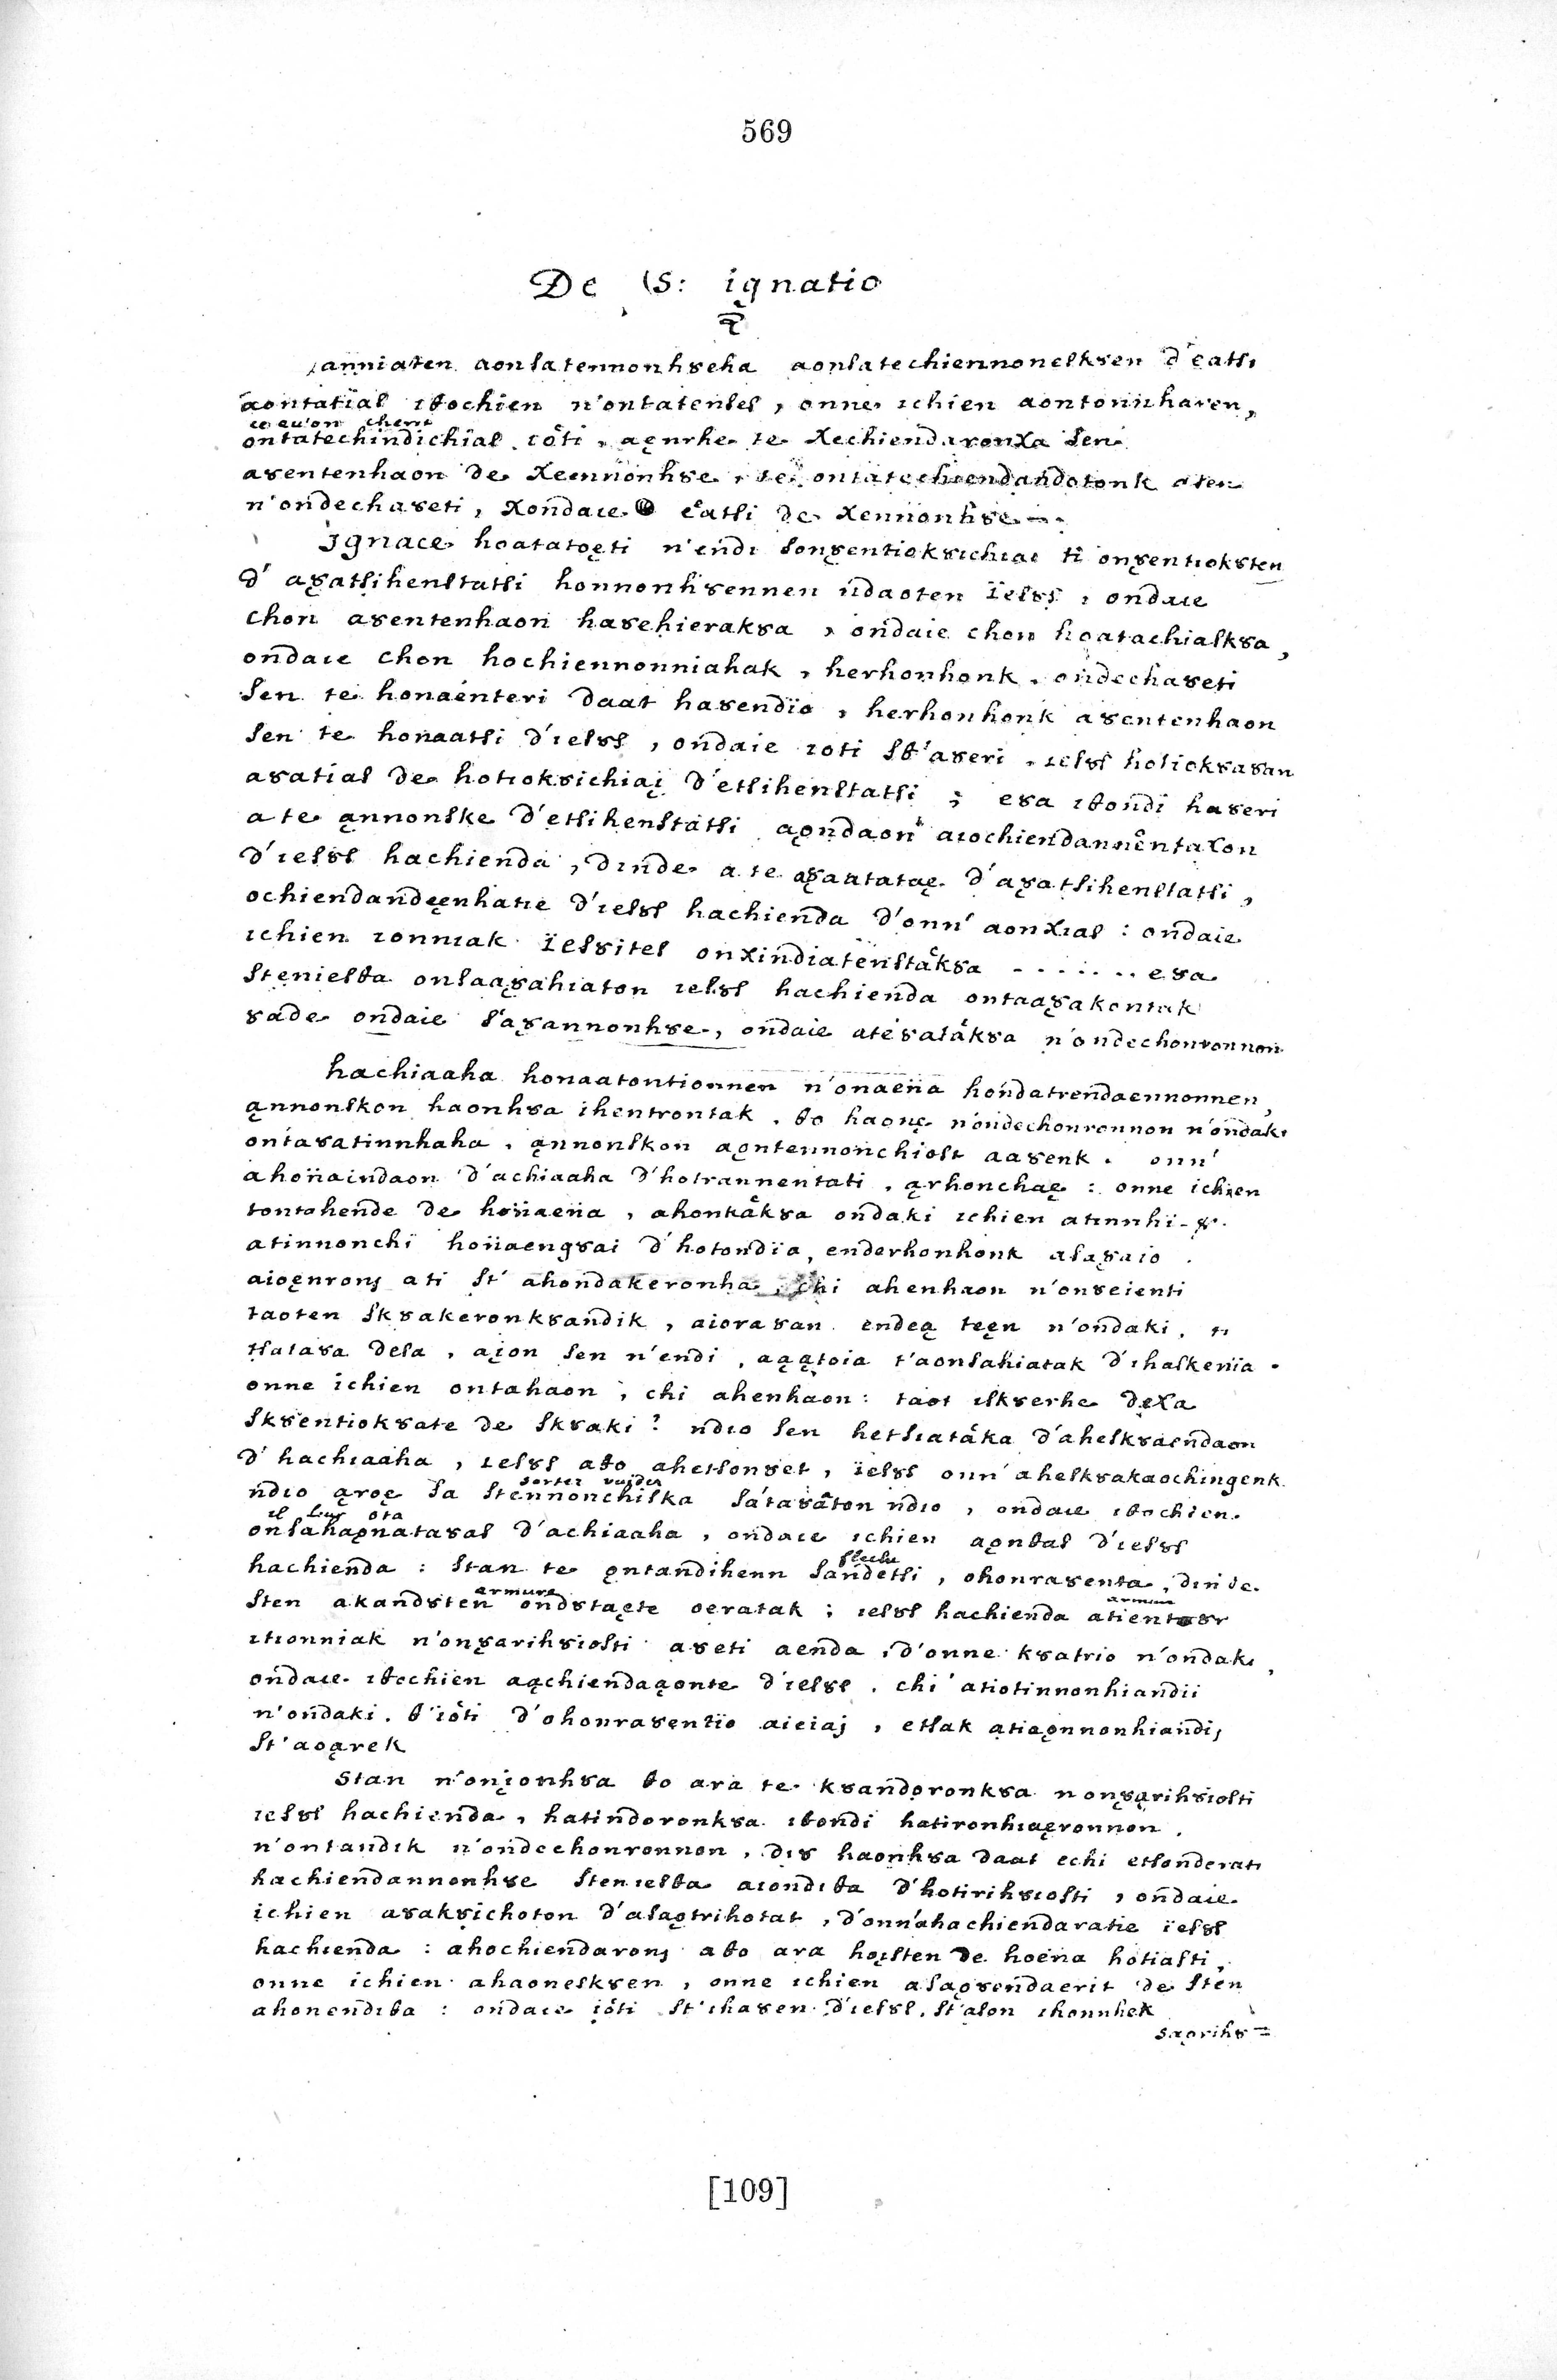 569
De S: ignatio
anniaten aonsatennonhȣeha aonsatechiennonesKȣen d'eatsi
aontatïas iθochien n'ontatenses, onne ichien aontonnharen,
ce qu'on cherit
ontatechindichïas iôti, aęnrhe te χechiendaronχa sen
aȣentenhaon de χennonhȣe, te ontatechiendandotonk aten
n'ondechaȣeti, χondaie eatsi de χennonhȣe
Ignace hoatatoęti n'endi sonȣentiokȣichiai ti onȣentiokȣten
d' aȣatsihenstatsi honnonhȣennen ndaoten ïesȣs, ondaie
chon aȣentenhaon haȣehierakȣa, ondaie chon hoatachiaskȣa,
ondaie chon hochiennonniahak, herhonhonk, ondechaȣeti
sen te honaénteri daat haȣendïo, herhonhonk aȣentenhaon
sen te honaatsi d'iesȣs, ondaie ioti sθ'aȣeri, iesȣs hotiokȣaȣan
aȣatias de hotiokȣichiaį d'etsihenstatsi ; eȣa iθondi haȣeri
a te ąnnonske d'etsihenstatsi aǫndaon aiochiendannêntaχon
d'iesȣs hachienda, dinde a te aȣaatataę d'aȣatsihenstatsi,
ochiendandęenhatie d'iesȣs hachienda d'onn' aonχias : ondaie
ichien ionniak ïesȣites onχindiatenstâkȣa - - - - - - - eȣa
steniesθa onsaaȣahiaton iesȣs hachienda ontaaȣakontak
ȣade ondaie s'aȣannonhȣe, ondaie atéȣatâkȣa n'ondechonronnon
hachiaaha honaatontionnen n'onaena hondatrendaennonnen,
ąnnonskon haonhȣa ihentrontak. θo haonę n'ondechonronnon n'ondaki
ontaȣatinnhaha. ąnnonskon aǫntennonchiost aaȣenk. onn'
ahonaendaon d'achiaaha d'hotrannentati. ąrhonchaę : onne ichien
tontahende de honaena, ahontâkȣa ondaki ichien atinnhi-ȣ.
atinnonchï honaengȣai d'hotondïa, enderhonhonk asaȣaio.
aioęnronj ati st' ahondakeronha, chi ahenhaon n'onȣeienti
taoten skȣakeronkȣandik, aioraȣan endeą teęn n'ondaki, ti
tsataȣa desa, aįon sen n'endi, aąątoia t'aonsahiatak d'ihaskenia.
onne ichien ontahaon, chi ahenhaon : taot iskȣerhe deχa
skȣentiokȣate de skȣaki ? ndio sen hetsiatâka d'aheskȣaendaon
d' hachiaaha, iesȣs aθo ahetsonȣet, ïesȣs onn' aheskȣakaochingenk
sorter vuider
ndio ąroę sa stennonchiska sátaȣâton ndio, ondaie iθochien
il leur ota
onsahaǫnataȣas d'achiaaha, ondaie ichien aǫnθas d'iesȣs
fleche
hachienda : stan te ǫntandihenn sandetsi, ohonraȣenta, dinde
armure armure
sten akandȣten ondȣtaęte oeratak ; iesȣs hachienda
itionniak n'onȣarihȣiosti aȣeti aenda, d'onne kȣatrio n'ondaki,
ondaie iθochien aąchiendaąonte d'iesȣs. chi' atiotinnonhiandii
n'ondaki. θ'iôti d'ohonraȣentïo aieiaj, etsak atiaǫnnonhiandij
st'aoąrek
stan n'onįonhȣa θo ara te kȣandoronkȣa nonȣarihȣiosti
iesȣs hachienda, hatindoronkȣa iθondi hatironhiaęronnon.
n'ontandik n'ondechonronnon, diȣ haonhȣa daat echi etsonderati
hachiendannonhȣe steniesθa aiondiθa d'hotirihȣiosti, ondaie
ichien aȣakȣichoton d'asaǫtrihotat, d'onn'ahachiendaratie ïesȣs
hachienda : ahochiendaronj aθo ara hoįsten de hoena hotiasti,
onne ichien ahaoneskȣen, onne ichien asaǫȣendaerit de sten
ahonendiθa : ondaie iôti st'ihaȣen d'iesȣs. st'ason ihonnhek
saǫrihȣ=
[109]